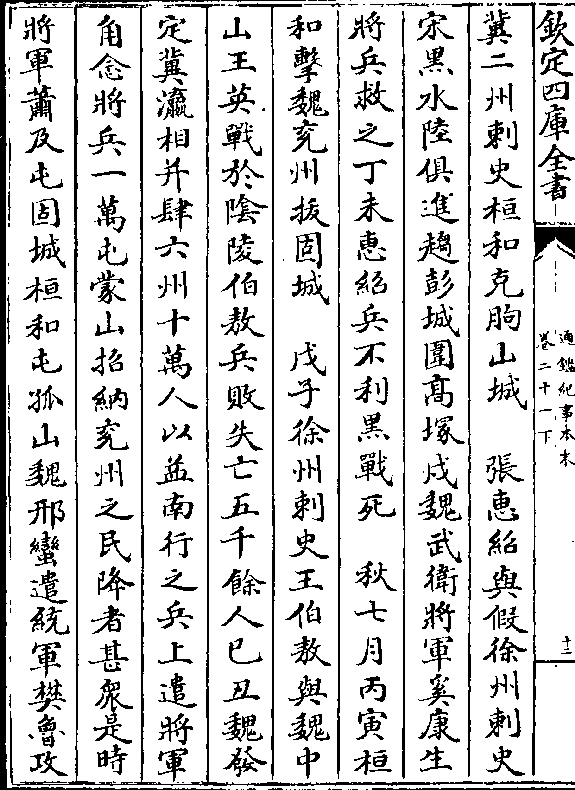 欽定四庫全書
通鑑紀事本末
卷二十一下
十二
冀二州刺史桓和克朐山城　張惠紹與假徐州刺史
宋黑水陸俱進趨彭城圍高塚戍魏武衛將軍奚康生
將兵救之丁未惠紹兵不利黑戰死　秋七月丙寅桓
和擊魏兖州拔固城　戊子徐州刺史王伯敖與魏中
山王英戰於陰陵伯敖兵敗失亡五千餘人己丑魏發
定冀瀛相并肆六州十萬人以益南行之兵上遣將軍
角念將兵一萬屯蒙山招納兖州之民降者甚衆是時
將軍蕭及屯固城桓和屯孤山魏邢蠻遣統軍樊魯攻